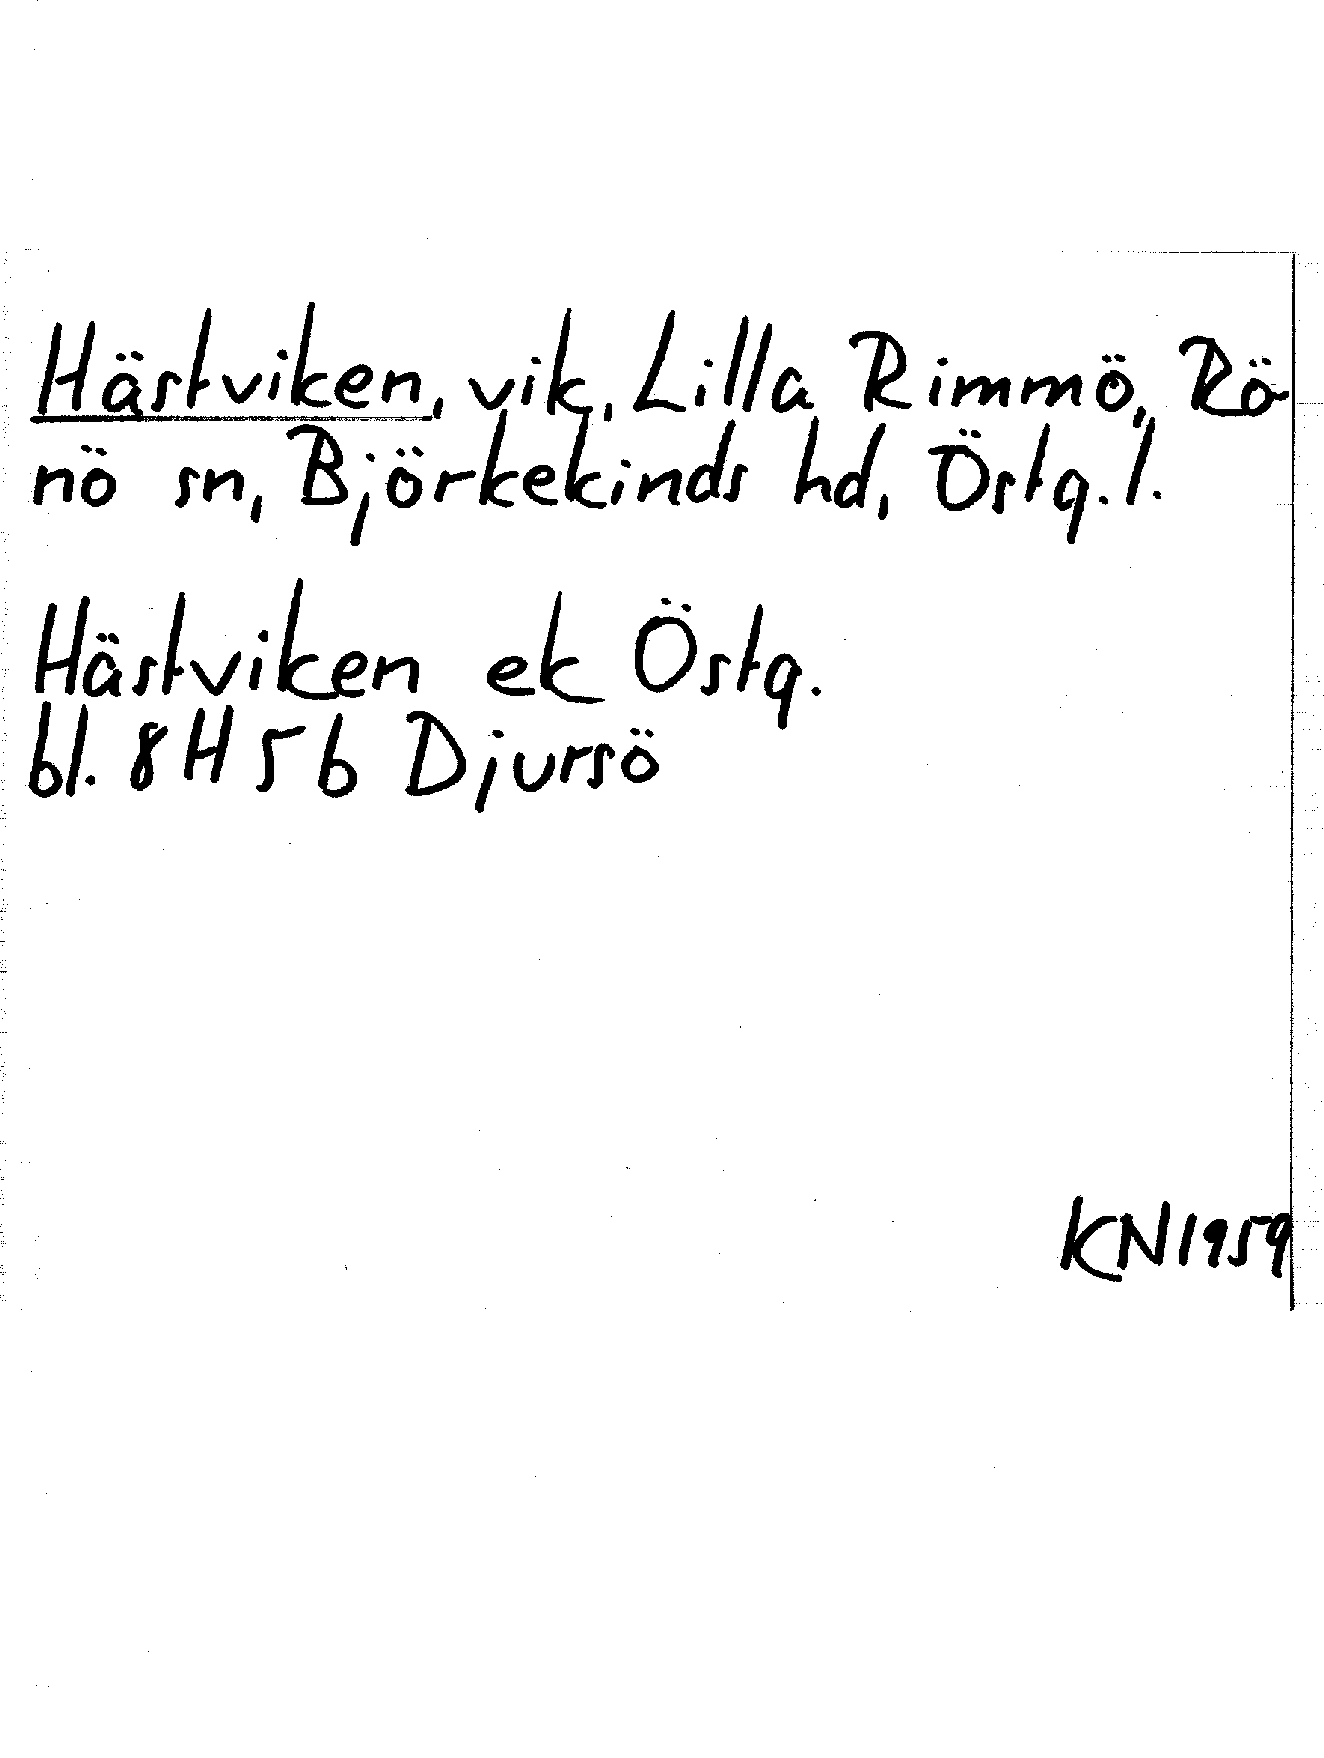 Hästviken, vik, Lilla Rimmö, Rö-
nö sn, Björkekinds hd, Östg. l.
Hästviken ek Östg.
bl. 8H 5b Djursö
KN1959